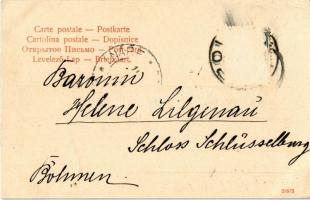 Carte postale — Postkarte
Cartolina postale — Dopisnice
Открытое Письмо —
Levelező-Lap — Briefkaart
Baronin
Helene Lilgenau
Schloss Schlüsselburg
Böhmen.